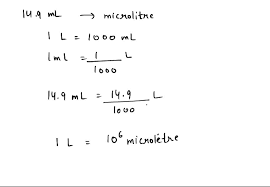 14.9 mL → microlitre
1 L = 1000 mL
1mL = 1/1000 L
14.9 mL = 14.9/1000 L
1 L = 10⁶ microlètre